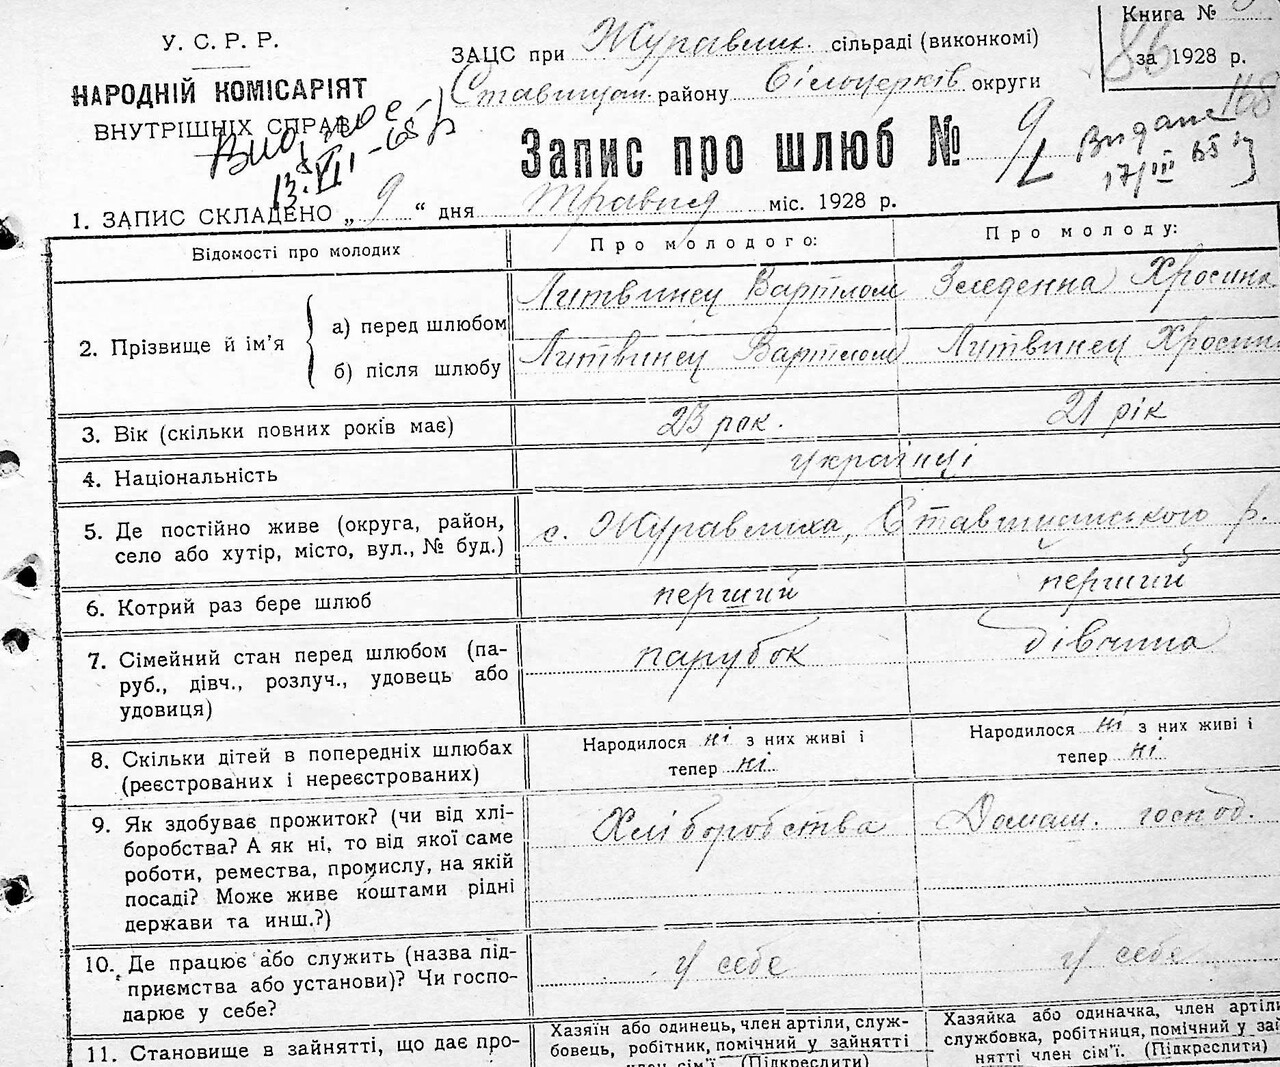 У. С. Р. Р.
НАРОДНІЙ КОМІСАРІЯТ
ВНУТРІШНІХ СПРАВ
ЗАЦС при Журавлик. сільраді (виконкомі)
Ставищан. району Білоцерків округи
Книга №
за 1928 р.
86
168
Запис про шлюб № 9
Видано
17/III 65
13.VII-65
1. ЗАПИС СКЛАДЕНО „ 9 “ дня травня міс. 1928 р.
Відомості про молодих
Про молодого:
Про молоду:
2. Прізвище й ім’я
а) перед шлюбом
Литвинец Вартлом
Зеледенна Хросина
б) після шлюбу
Литвинец Вартлом
Литвинец Хросин
3. Вік (скільки повних років має)
23 рок.
21 рік
4. Національність
українці
5. Де постійно живе (округа, район,
село або хутір, місто, вул., № буд.)
с. Журавлиха, Ставищанського р.
6. Котрий раз бере шлюб
перший
перший
7. Сімейний стан перед шлюбом (па-
руб., дівч., розлуч., удовець або
удовиця)
парубок
дівчина
8. Скільки дітей в попередніх шлюбах
(реєстрованих і нереєстрованих)
Народилося ні з них живі і
тепер ні
Народилося ні з них живі і
тепер ні
9. Як здобуває прожиток? (чи від хлі-
боробства? А як ні, то від якої саме
роботи, ремества, промислу, на якій
посаді? Може живе коштами рідні
держави та инш.?)
Хліборобства
Домаш. господ.
10. Де працює або служить (назва під-
приємства або установи)? Чи госпо-
дарює у себе?
у себе
у себе
11. Становище в зайнятті, що дає про-
Хазяїн або одинець, член артіли, служ-
бовець, робітник, помічний у зайнятті
член сім’ї. (Підкреслити)
Хазяйка або одиначка, член артіли
службовка, робітниця, помічний у зай
нятті член сім’ї. (Підкреслити)